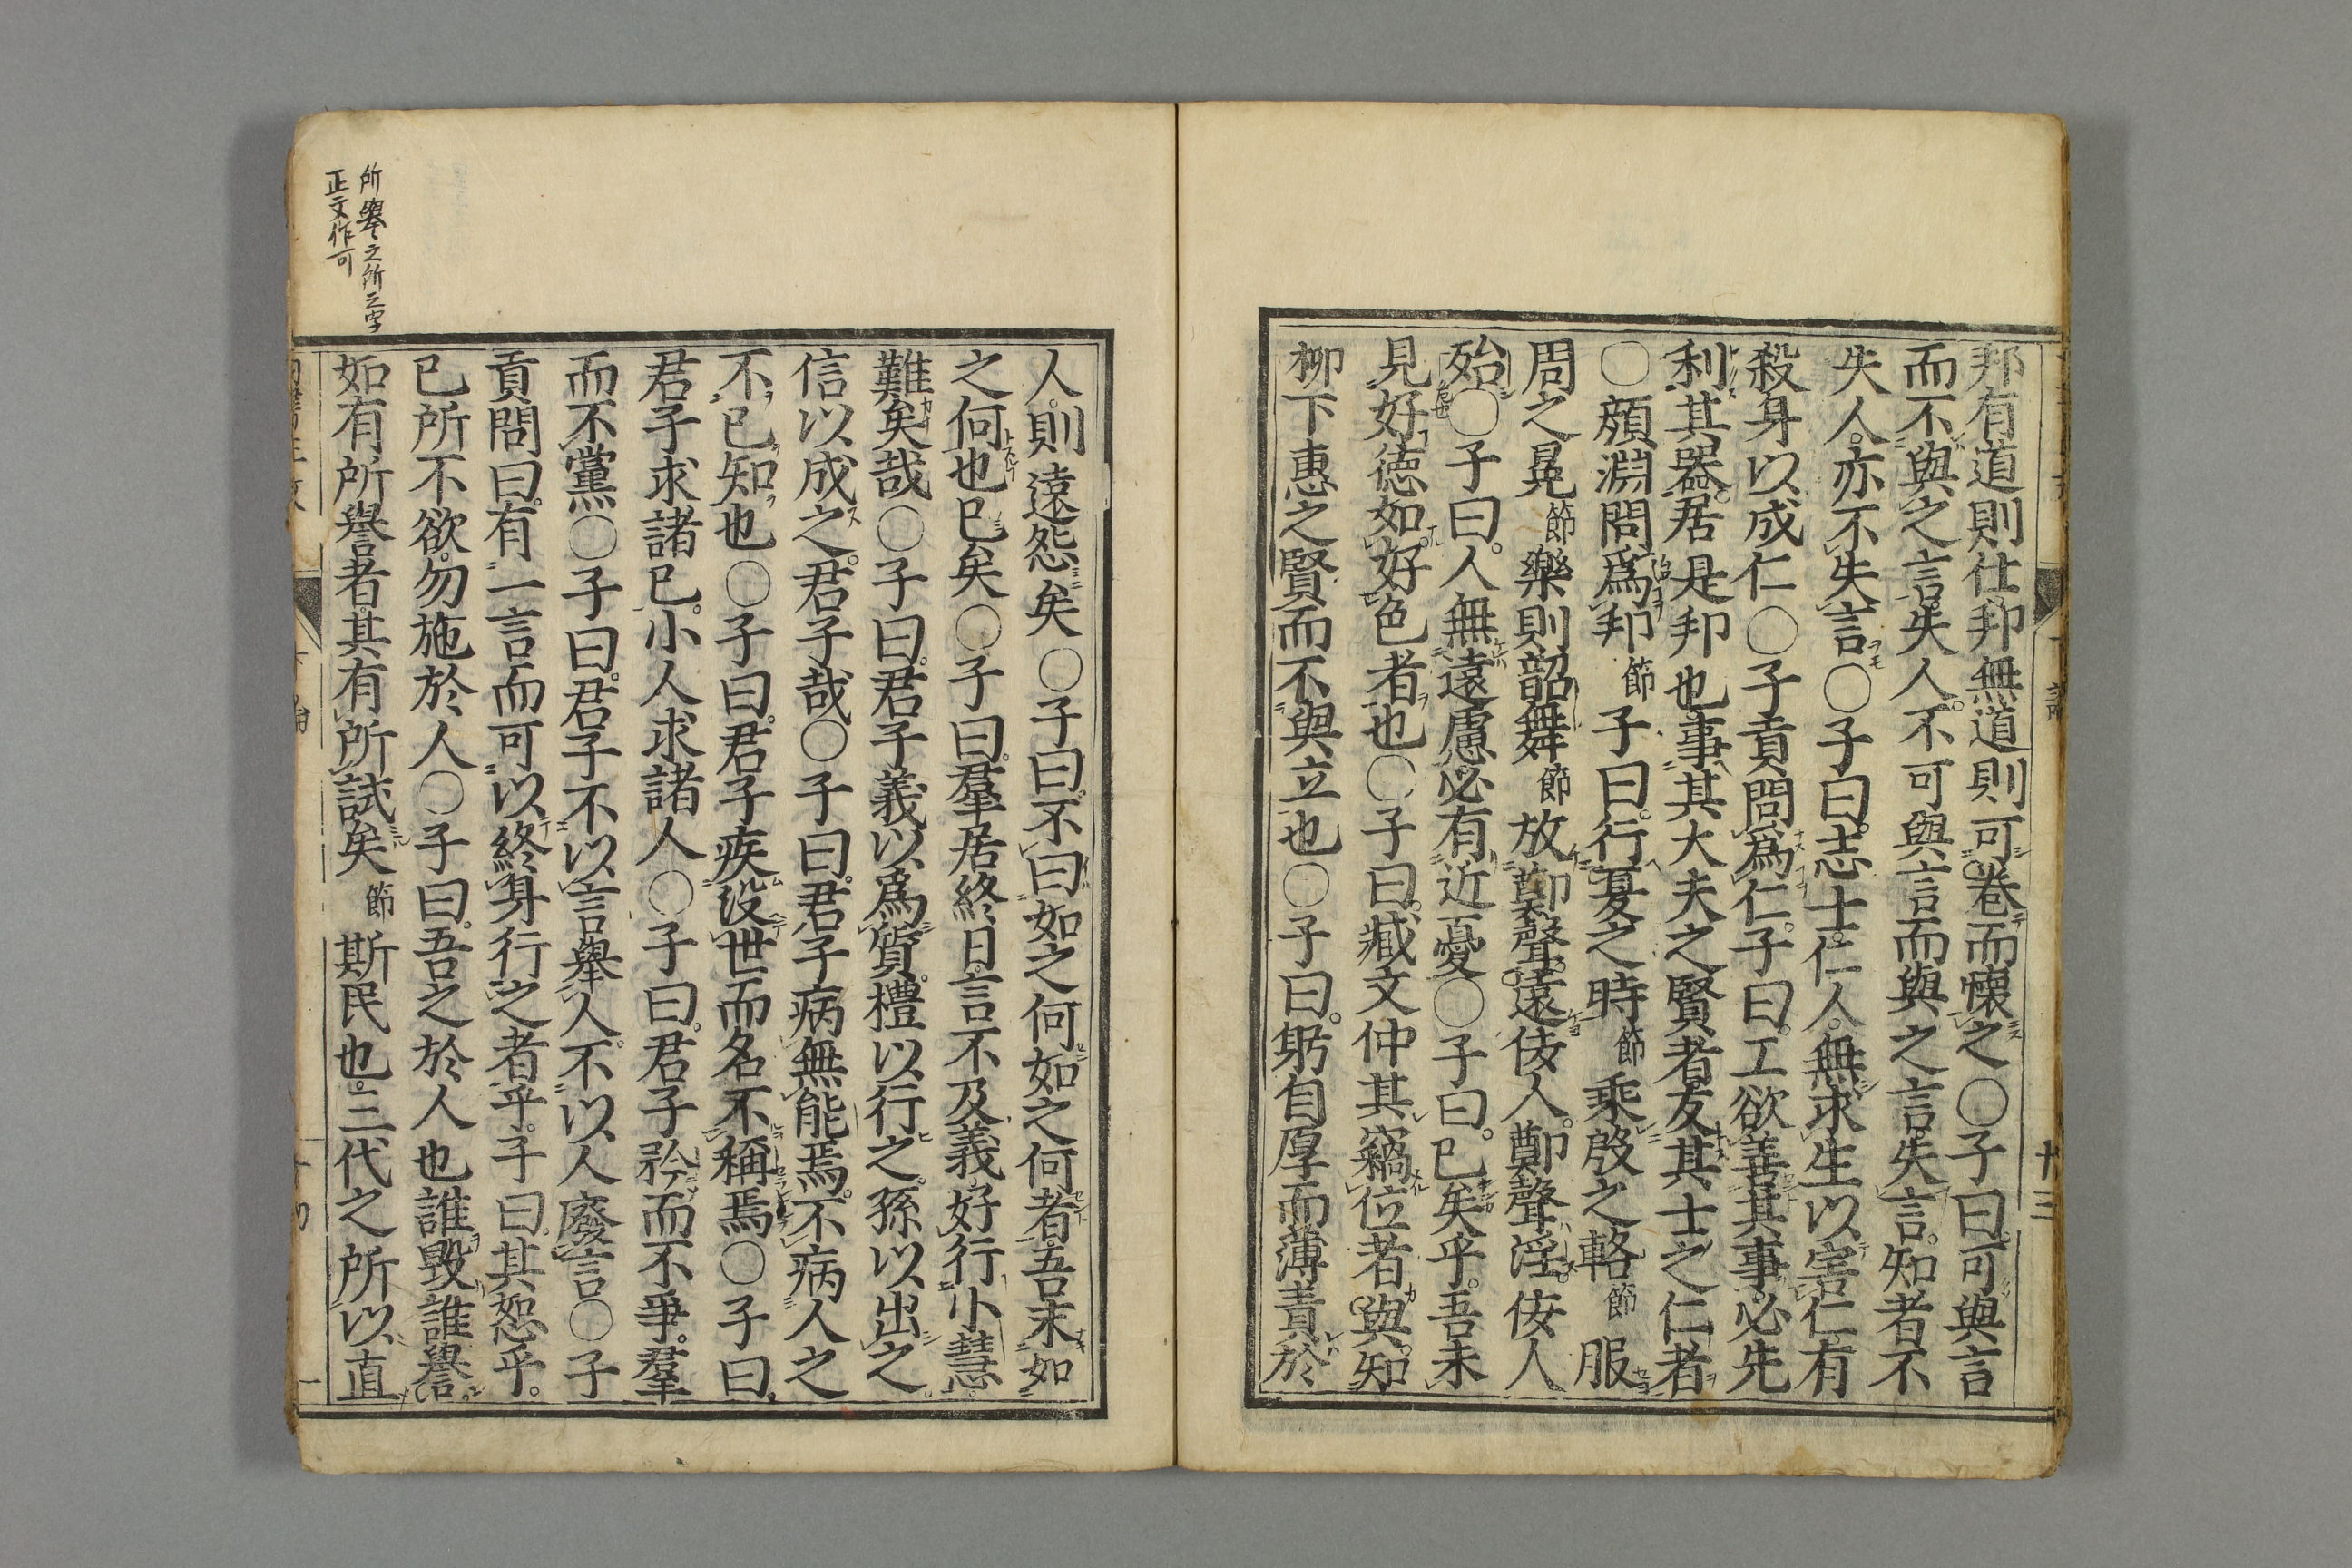 邦有道則仕邦無道則可卷而懷之〇子曰可與言
而不與之言失人不可與言而與之言失言知者不
失人亦不失言〇子曰志士仁人無求生以害仁有
殺身以成仁〇子貢問爲仁子曰工欲善其事必先
利其器居是邦也事其大夫之賢者友其士之仁者
〇顏淵問爲邦節子曰行夏之時節乘殷之輅節服
周之冕節樂則韶舞節放鄭聲遠佞人鄭聲淫佞人
殆〇子曰人無遠慮必有近憂〇子曰已矣乎吾未
見好德如好色者也〇子曰臧文仲其竊位者與知
柳下惠之賢而不與立也〇子曰躬自厚而薄責於
廿三
人則遠怨矣〇子曰不曰如之何如之何者吾末如
之何也已矣〇子曰羣居終日言不及義好行小慧
難矣哉〇子曰君子義以爲質禮以行之孫以出之
信以成之君子哉〇子曰君子病無能焉不病人之
不已知也〇子曰君子疾没世而名不稱焉〇子曰
君子求諸已小人求諸人〇子曰君子矜而不爭羣
而不黨〇子曰君子不以言舉人不以人廢言〇子
貢問曰有一言而可以終身行之者乎子曰其恕乎
已所不欲勿施於人〇子曰吾之於人也誰毀誰譽
如有所譽者其有所試矣節斯民也三代之所以直
所舉之所之字
正文作可